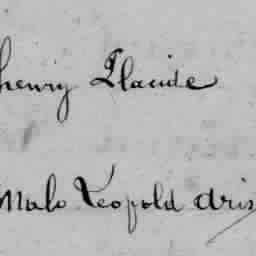 henry Placide
Malo Leopold Aris